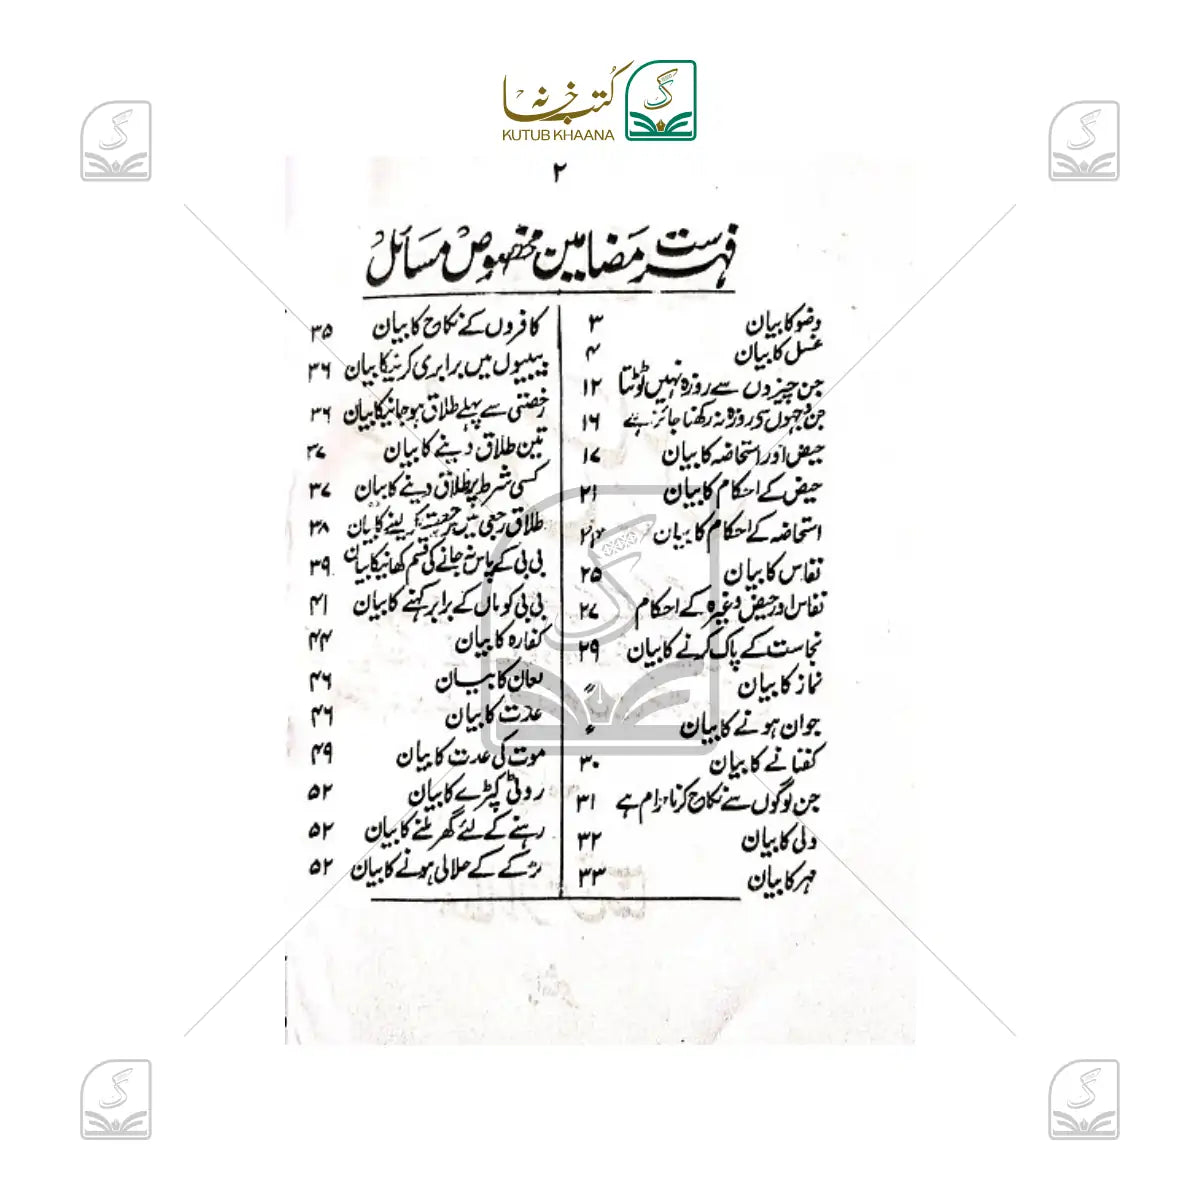 کتب خانہ
KUTUB KHAANA
۲
فہرست مضامین مخصوص مسائل
وضو کا بیان ۳
غسل کا بیان ۴
جن چیزوں سے روزہ نہیں ٹوٹتا ۱۲
جن وجہوں سے روزہ نہ رکھنا جائز ہے ۱۶
حیض اور استحاضہ کا بیان ۱۷
حیض کے احکام کا بیان ۲۱
استحاضہ کے احکام کا بیان
نفاس کا بیان ۲۵
نفاس اور حیض وغیرہ کے احکام ۲۷
نجاست کے پاک کرنے کا بیان ۲۹
نماز کا بیان 〃
جوان ہونے کا بیان 〃
کفنانے کا بیان ۳۰
جن لوگوں سے نکاح کرنا حرام ہے ۳۱
ولی کا بیان ۳۲
مہر کا بیان ۳۳
کافروں کے نکاح کا بیان ۳۵
بیبیوں میں برابری کرنیکا بیان ۳۶
رخصتی سے پہلے طلاق ہو جانیکا بیان ۳۶
تین طلاق دینے کا بیان ۳۷
کسی شرط پر طلاق دینے کا بیان ۳۷
طلاق رجعی میں رجعت کر لینے کا بیان ۳۸
بی بی کے پاس نہ جانے کی قسم کھانیکا بیان ۳۹
بی بی کو ماں کے برابر کہنے کا بیان ۴۱
کفارہ کا بیان ۴۴
لعان کا بیان ۴۶
عدت کا بیان ۴۶
موت کی عدت کا بیان ۴۹
روٹی کپڑے کا بیان ۵۲
رہنے کے لئے گھر ملنے کا بیان ۵۲
لڑکے کے حلالی ہونے کا بیان ۵۲